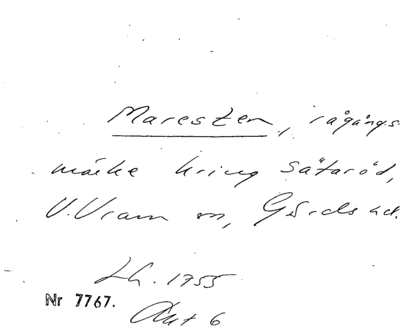 Maresten, rågångs
märke kring Sätaröd,
V. Vram sn, Gärds hd.
Lh. 1755
Nr 7767.
Akt 6